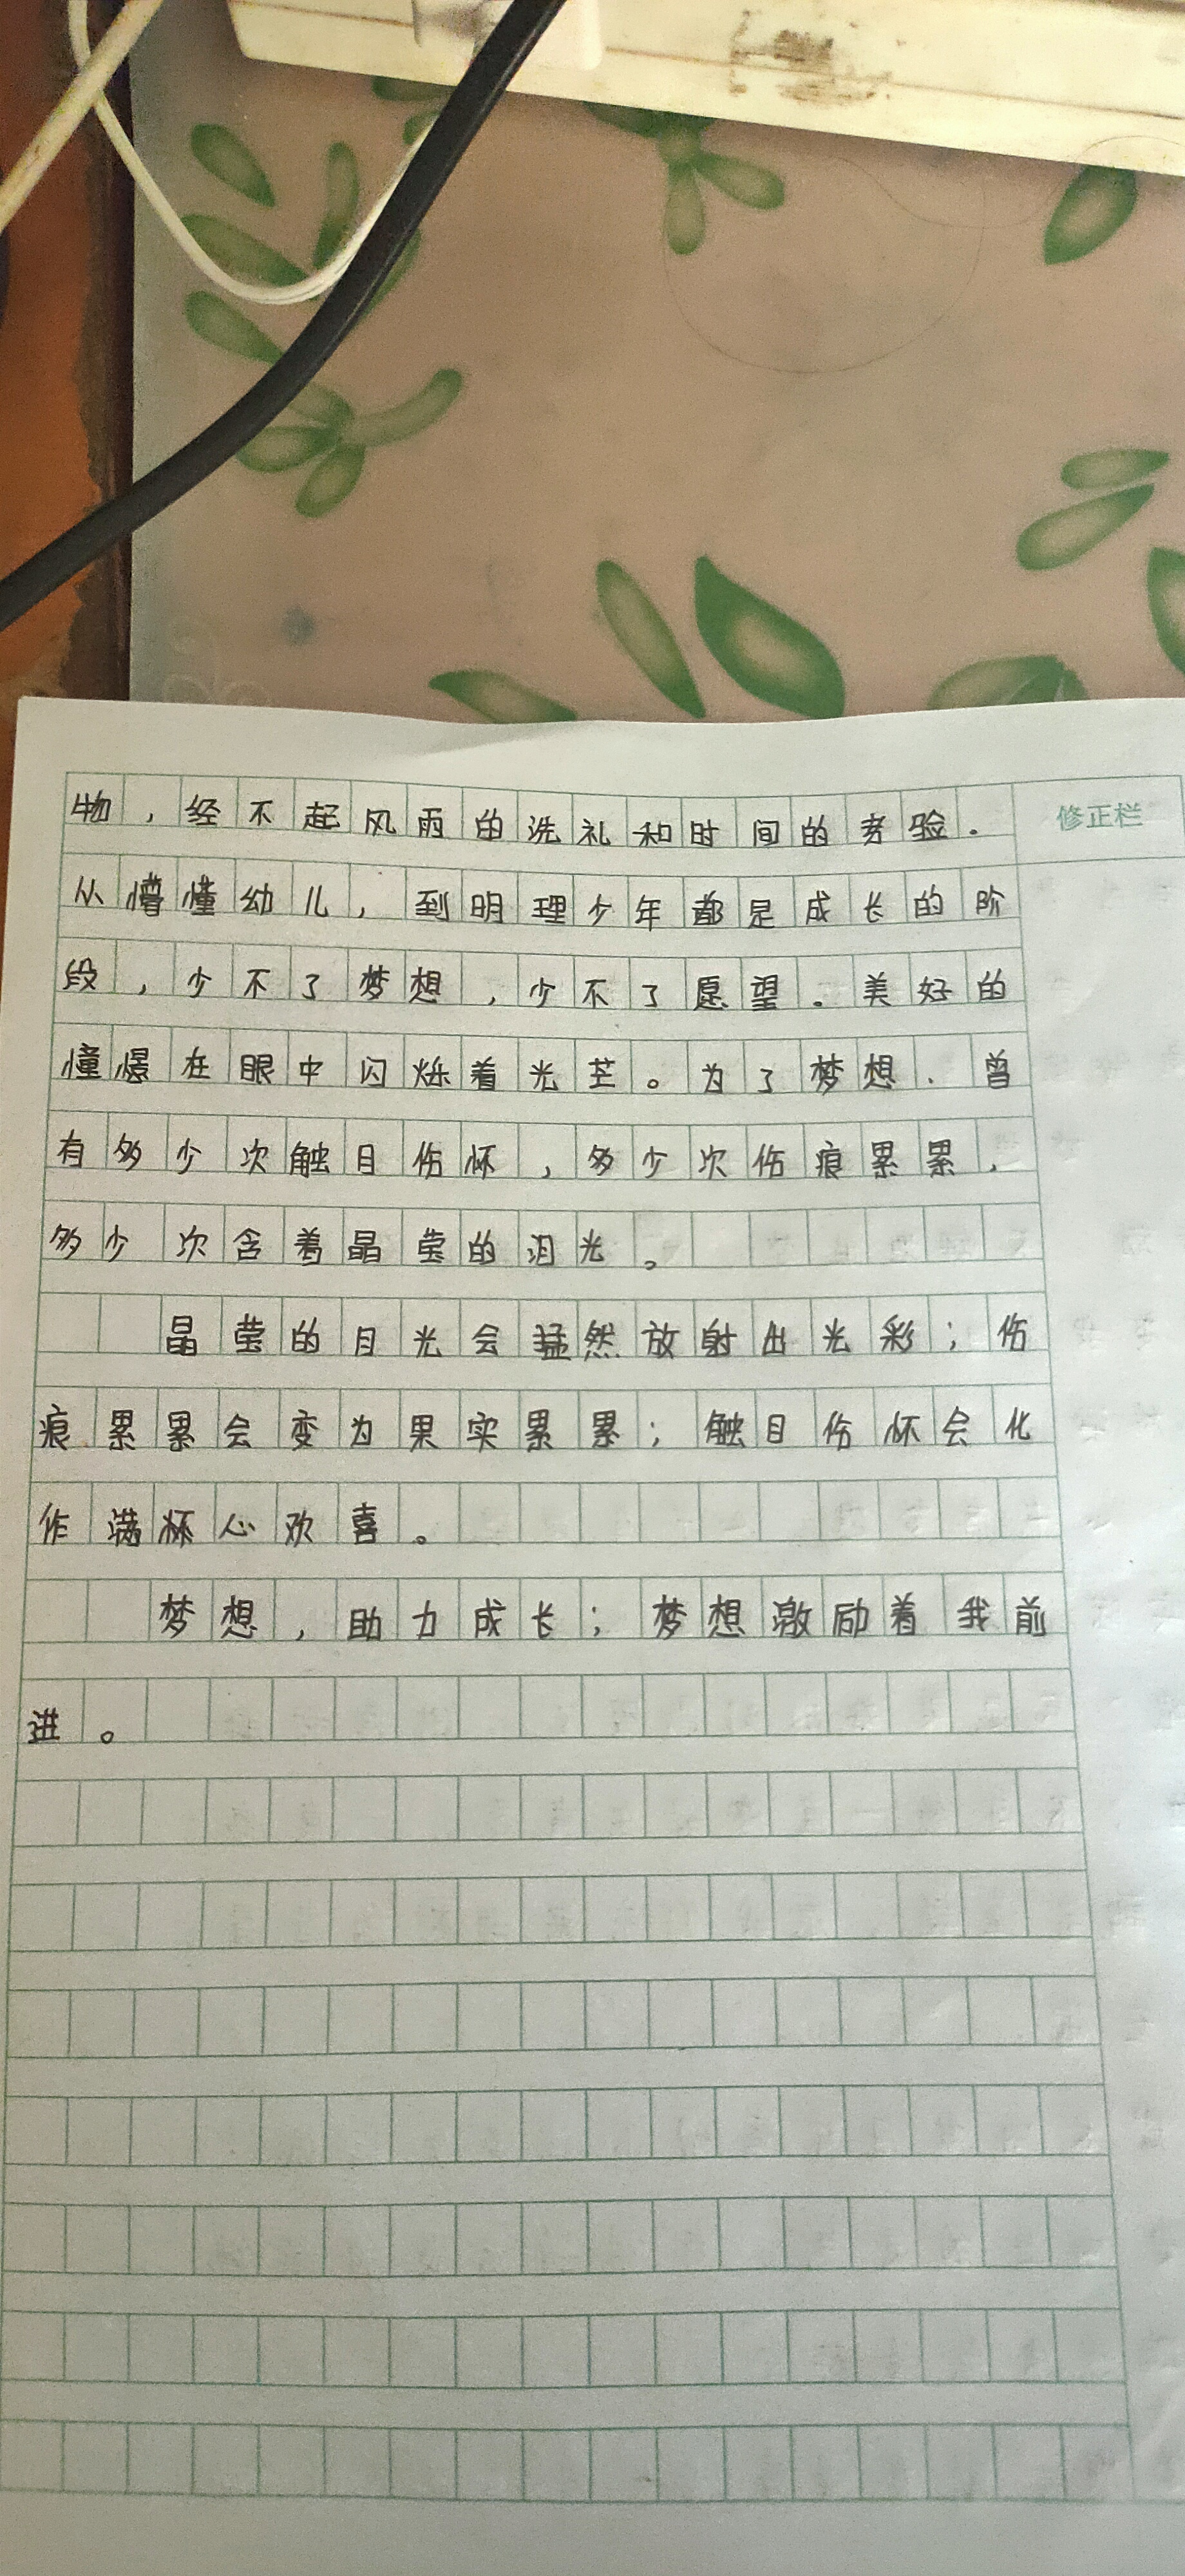 物，经不起风雨的洗礼和时间的考验．
修正栏
从懵懂幼儿，到明理少年都是成长的阶
段，少不了梦想，少不了愿望．美好的
憧憬在眼中闪烁着光芒。为了梦想．曾
有多少次触目伤怀，多少次伤痕累累，
多少次含着晶莹的泪光。
晶莹的目光会猛然放射出光彩；伤
痕累累会变为果实累累；触目伤怀会化
作满怀心欢喜。
梦想，助力成长；梦想激励着我前
进。